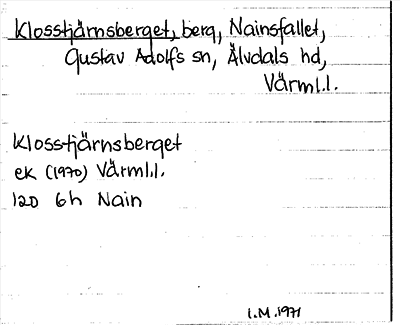 Klosstjärnsberget, berg, Nainsfallet,
Gustav Adolfs sn, Älvdals hd,
Värml.l.
Klosstjärnsberget
ek (1970) Värml.l.
12D 6h Nain
I.M.1971